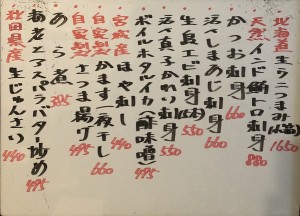 北海道 生ウニつまみ 1650
天然インド鮪トロ刺身 880
かつお刺身 660
活〆しまあじ刺身 660
生息エビ刺身 550
活〆真子かれい刺身 550
ボイルホタルイカ(酢味噌) 495
宮城産 ほや刺し 440
自家製 かます一夜干し 660
自家製 さつま揚げ 495
あら煮 385
海老とアスパラバター炒め 495
秋田県産 生じゅんさい 440